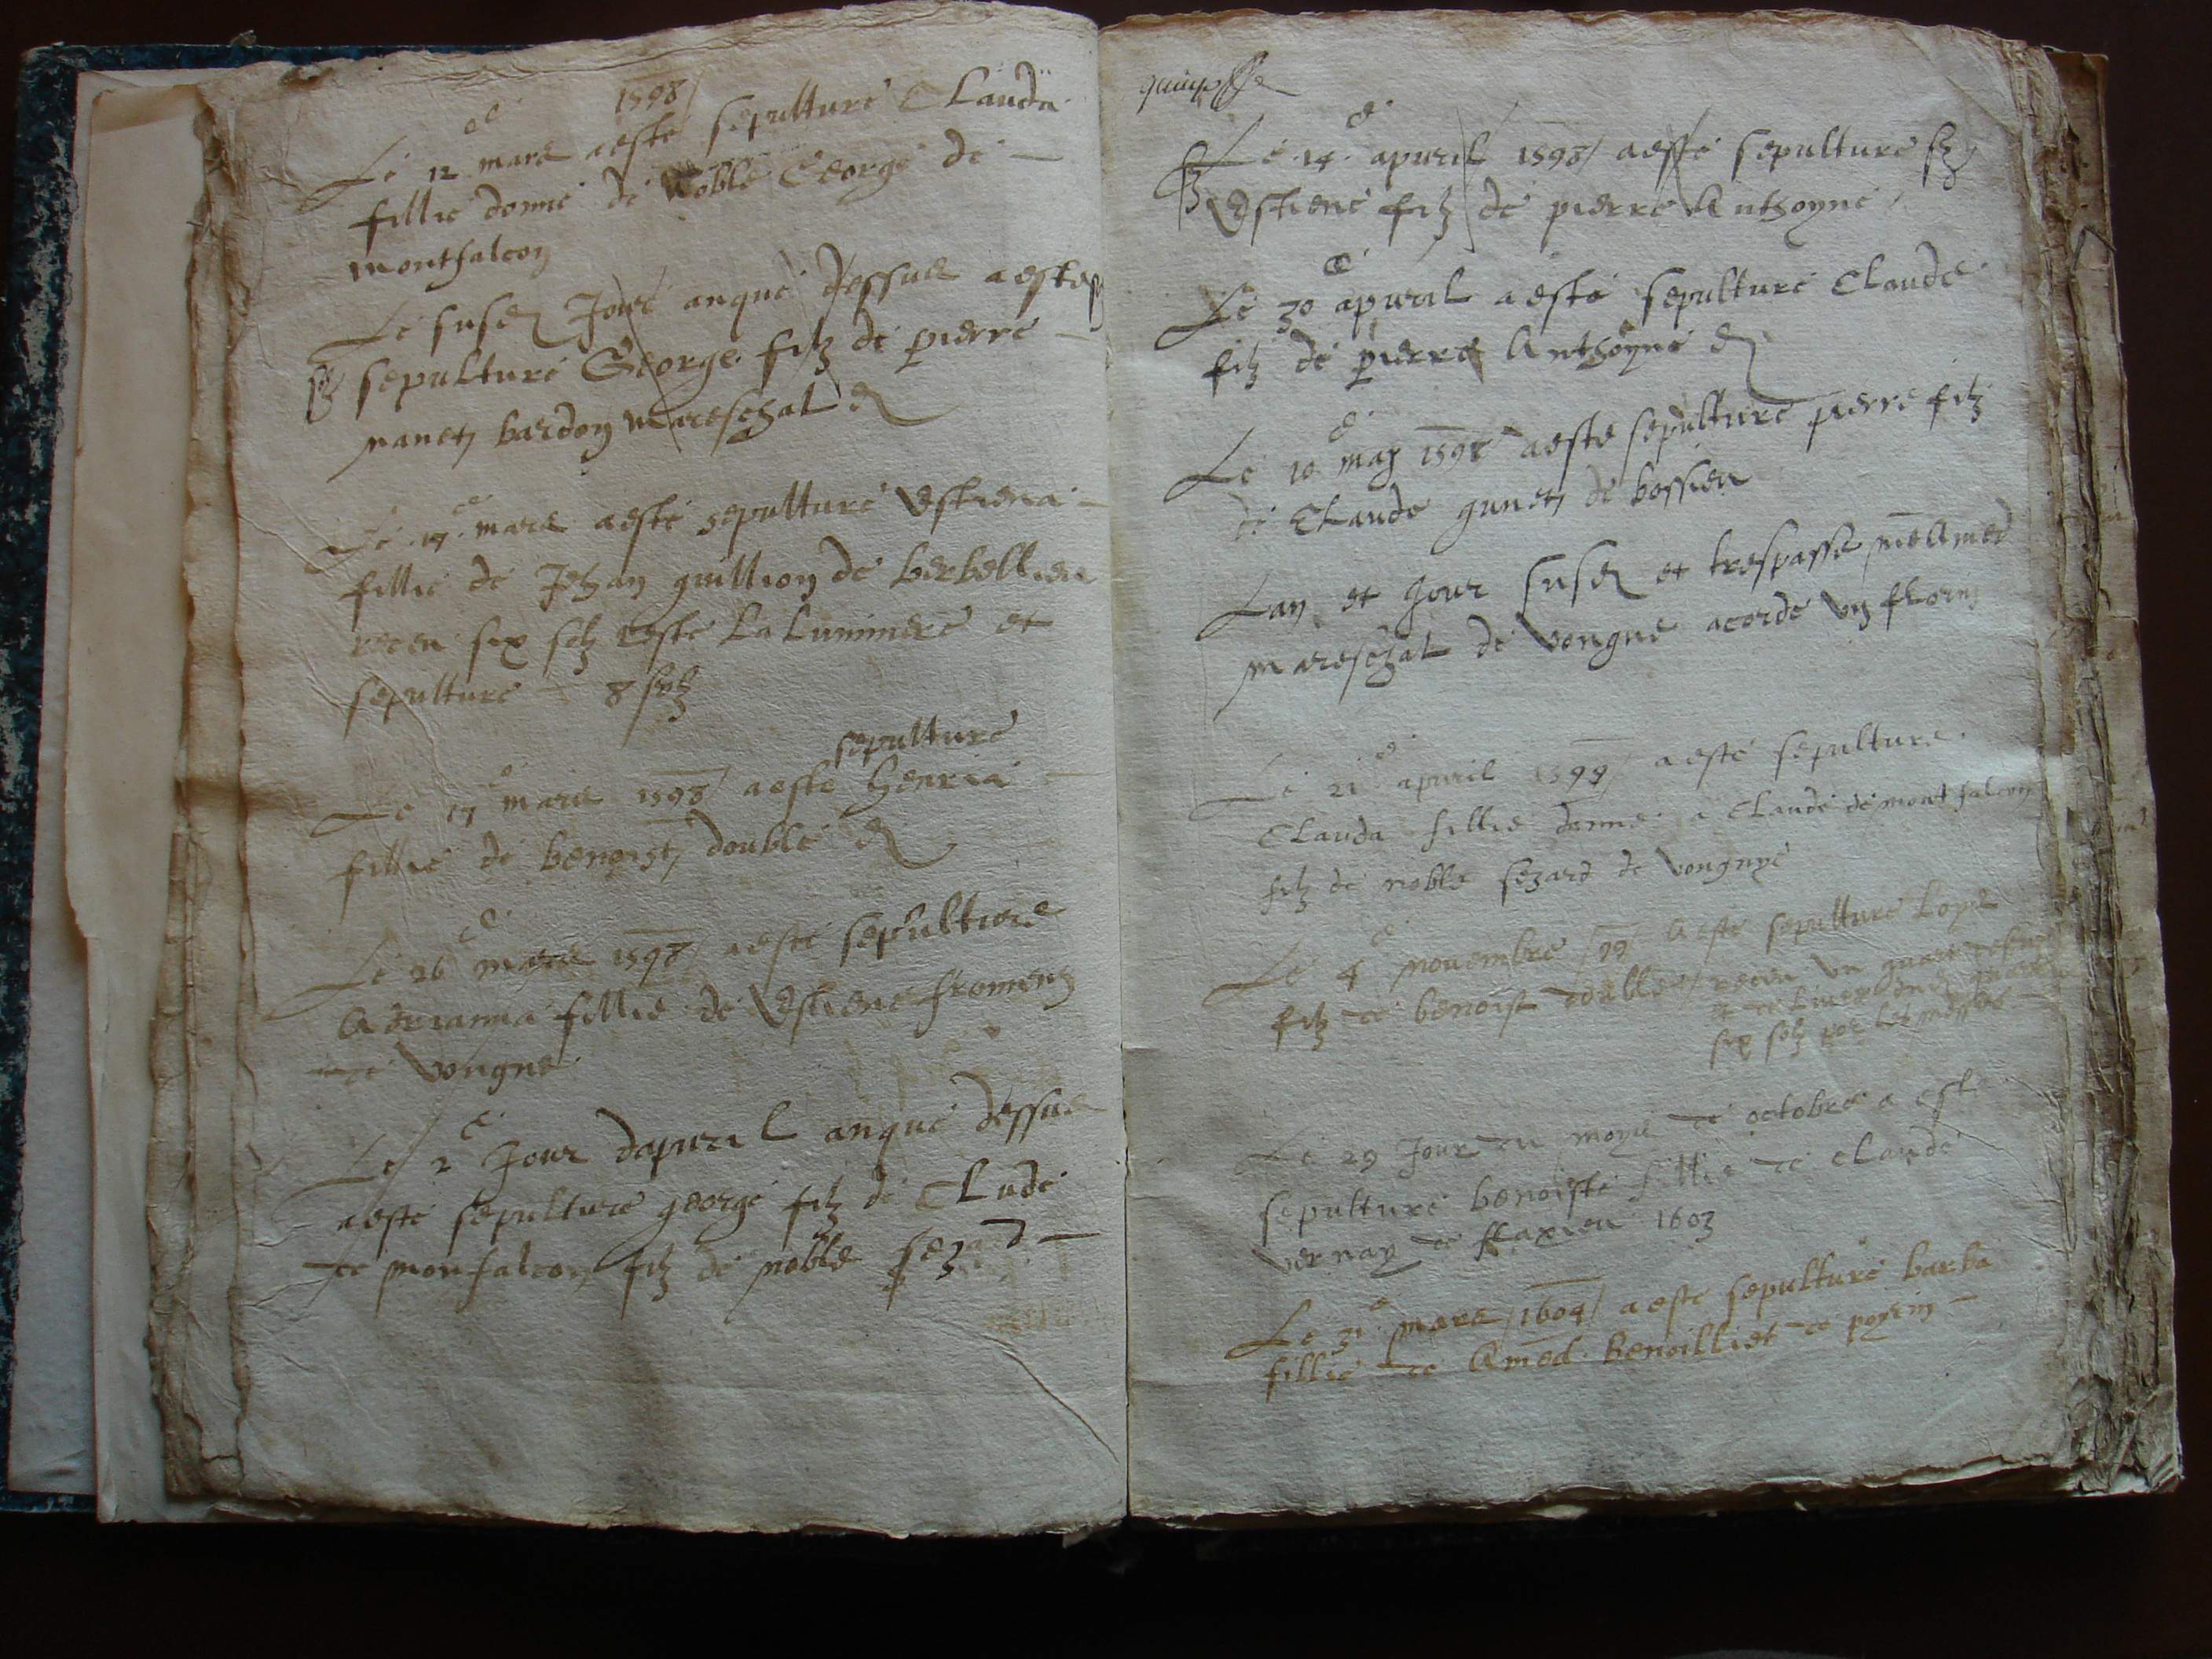 1598
Le 12 mars a este sepulture Clauda
fillie donne de Noble George de
montfalcon
Le susd Jour anque dessus a este
sepulture George filz de pierre
nanet bardon mareschal
Le 17 mars a este sepulture Estiena
fillie de Jehan guillion de berbellieu
receu six solz reste La Luminere et
sepulture 8 solz
sepulture
Le 17e mars 1598 a este henria
fillie de benoist double
Le 26e mars 1598 a este sepulture
Adrianna fillie de Estiene froment
de vongne
Le 2e Jour dapvril anque dessus
a este sepulture george filz de Clude
de monfalcon filz de noble sezard
Le 14e apvril 1598 a este sepulture
Estiene filz de pierre Anthoyne
Le 30e apvril a este sepulture Claude
filz de pierre Anthoyne
Le 10e may 1598 a este sepulture pierre filz
de Claude gunet de bossieu
Lan et Jour susd et trespasse Amed
mareschal de vongne acorde ung florin
Le 21e apvril 1599 a este sepulture
Clauda fillie donne a Claude de montfalcon
filz de noble sezard de vongnye
Le 4e novembre 99 a este sepulture Loys
filz de benoist double receu un quart
six solz por les messes
Le 29 Jour du moys de octobre a este
sepulture benoiste fillie de Claude
vernay de flaxieu 1603
Le 31e mars 1604 a este sepulture barba
fillie de Amed benoilliet de poyein